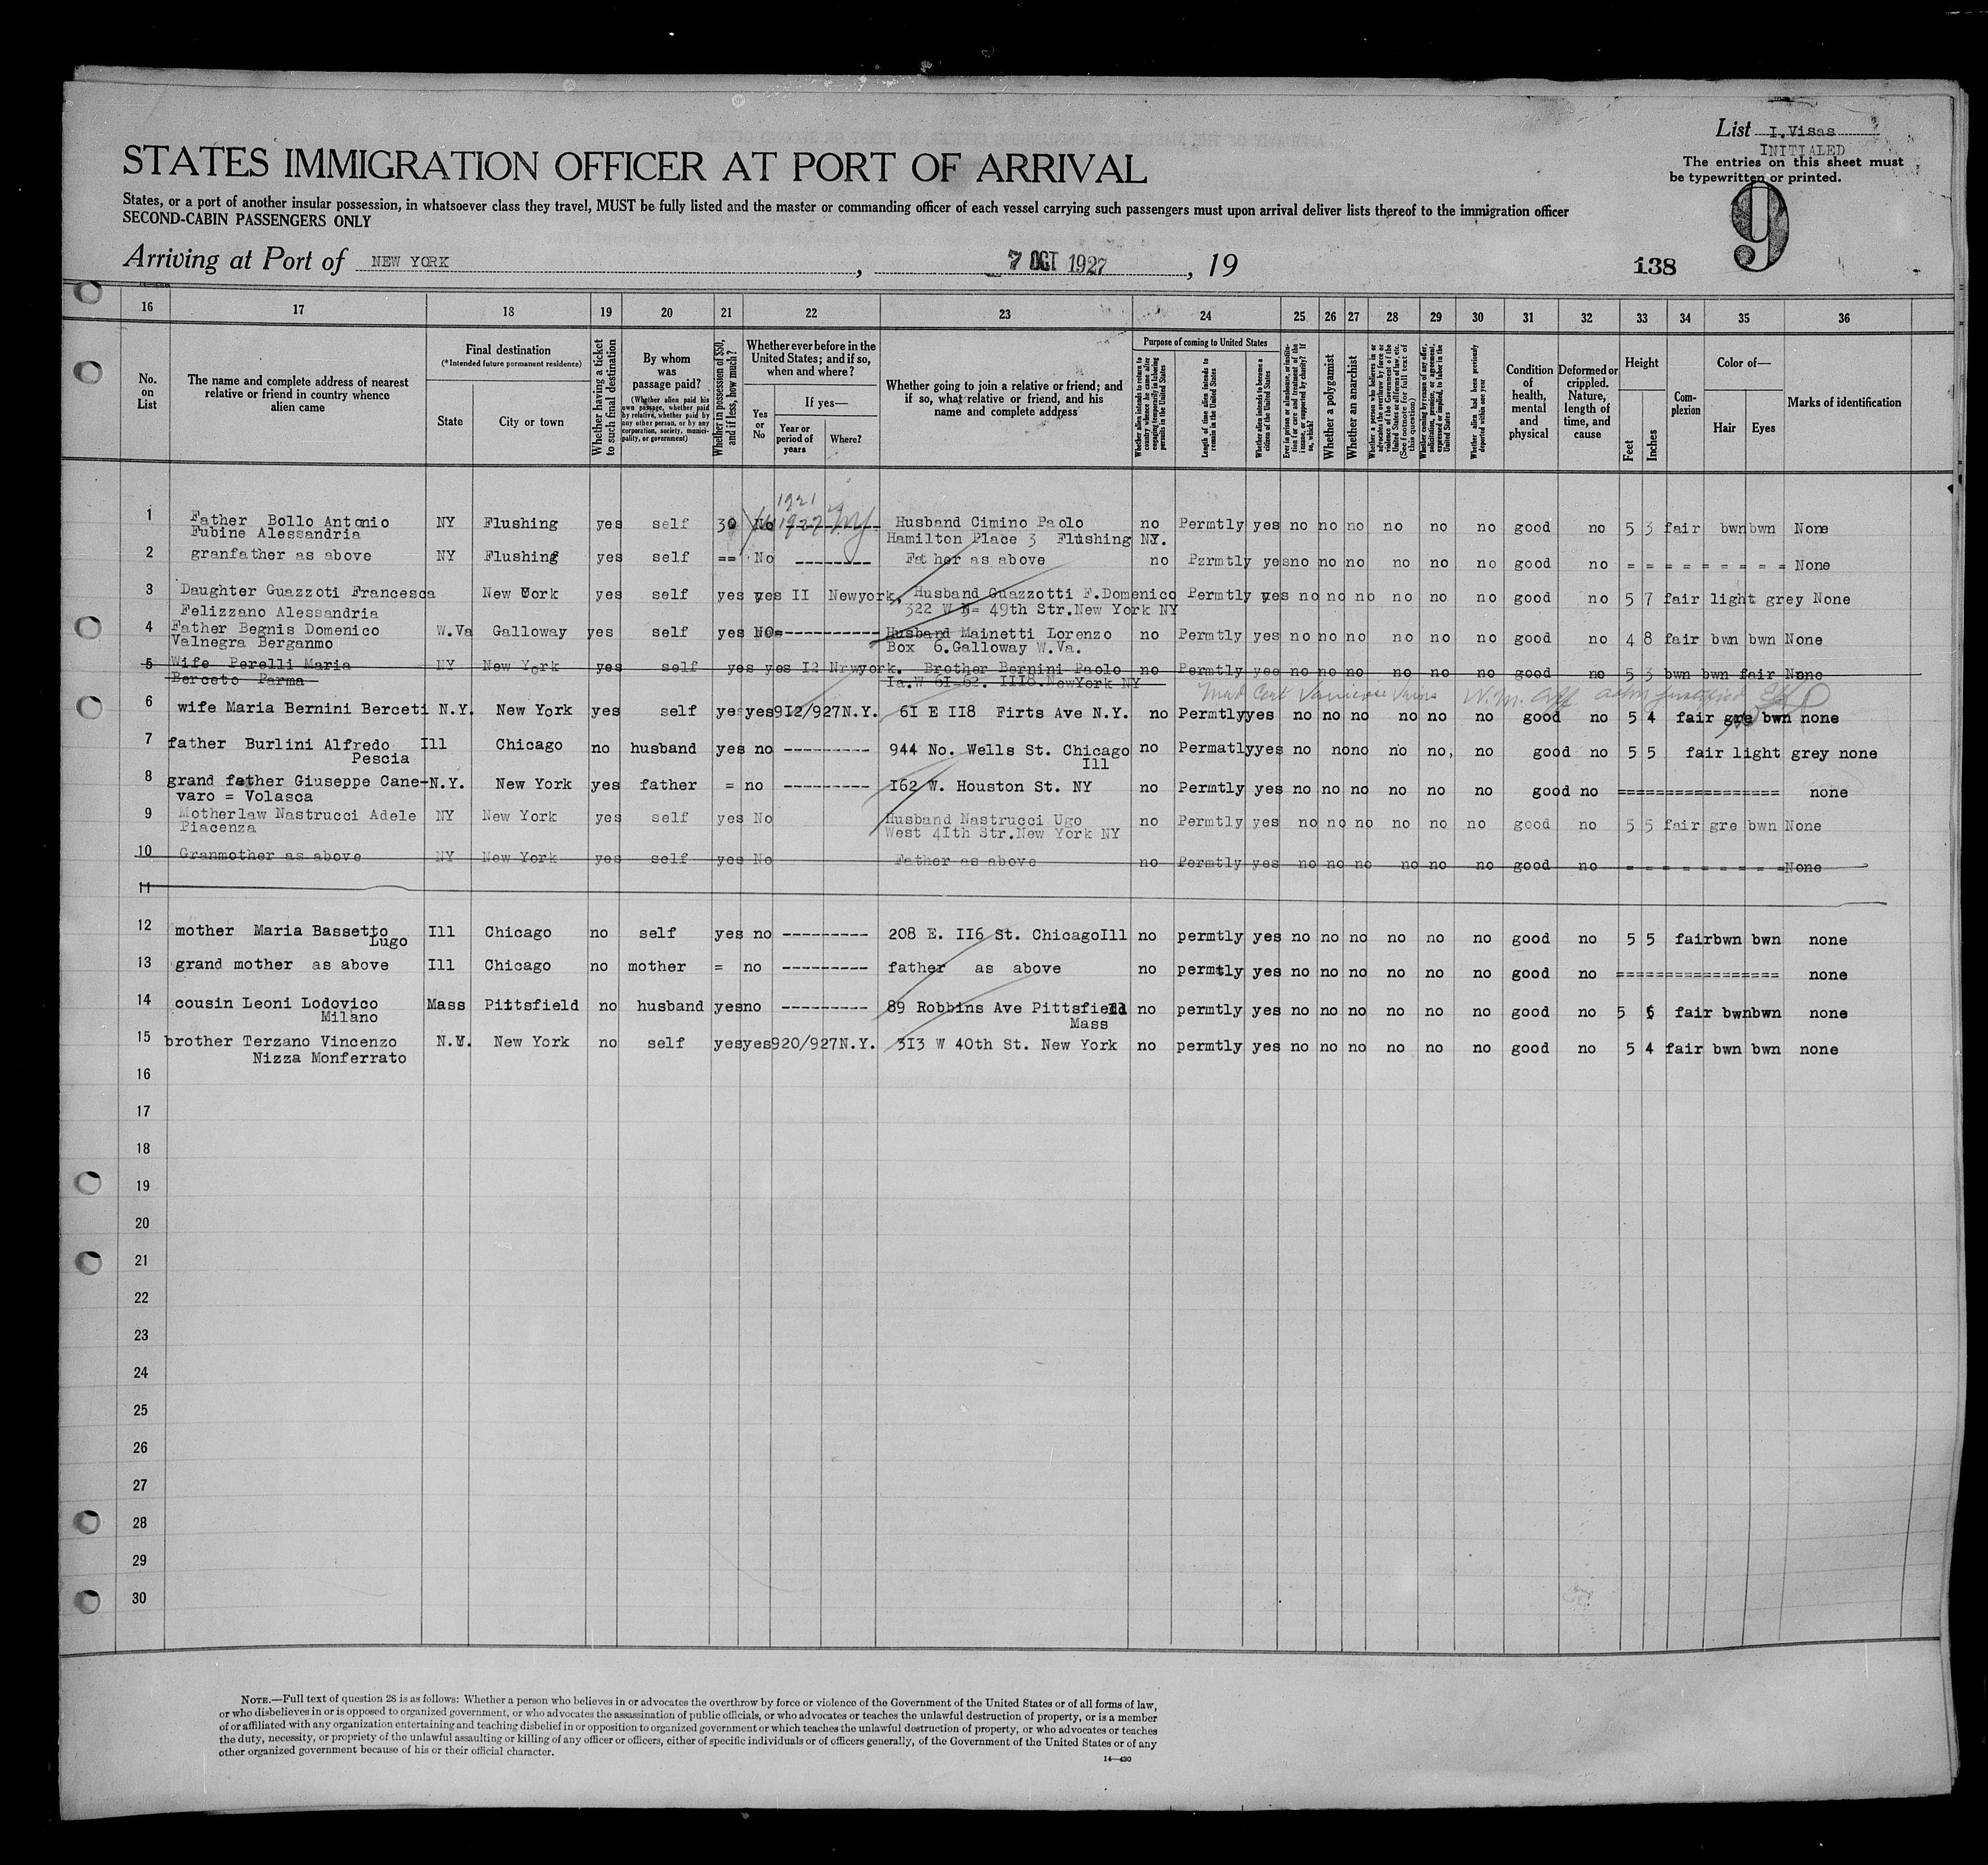 List I.Visas
INITIALED
The entries on this sheet must
be typewritten or printed.
STATES IMMIGRATION OFFICER AT PORT OF ARRIVAL
States, or a port of another insular possession, in whatsoever class they travel, MUST be fully listed and the master or commanding officer of each vessel carrying such passengers must upon arrival deliver lists thereof to the immigration officer
SECOND-CABIN PASSENGERS ONLY
9
Arriving at Port of NEW YORK, 7 OCT 1927, 19
138
16 17 18 19 20 21 22 23 24 25 26 27 28 29 30 31 32 33 34 35 36
No. on List
The name and complete address of nearest relative or friend in country whence alien came
Final destination
(*Intended future permanent residence)
State
City or town
Whether having a ticket to such final destination
By whom was passage paid?
(Whether alien paid his own passage, whether paid by relative, whether paid by any other person, or by any corporation, society, municipality, or government)
Whether in possession of $50, and if less, how much?
Whether ever before in the United States; and if so, when and where?
Yes or No
If yes—
Year or period of years
Where?
Whether going to join a relative or friend; and if so, what relative or friend, and his name and complete address
Purpose of coming to United States
Whether alien intends to return to country whence he came after engaging temporarily in laboring pursuits in the United States
Length of time alien intends to remain in the United States
Whether alien intends to become a citizen of the United States
Ever in prison or almshouse, or institution for care and treatment of the insane, or supported by charity? If so, which?
Whether a polygamist
Whether an anarchist
Whether a person who believes in or advocates the overthrow by force or violence of the Government of the United States or all forms of law, etc. (See footnote for full text of this question)
Whether coming by reason of any offer, solicitation, promise, or agreement, expressed or implied, to labor in the United States
Whether alien had been previously deported within one year
Condition of health, mental and physical
Deformed or crippled. Nature, length of time, and cause
Height
Feet
Inches
Complexion
Color of—
Hair
Eyes
Marks of identification
1921
1 Father Bollo Antonio NY Flushing yes self 30 No 1927 N.Y. Husband Cimino Paolo no Permtly yes no no no no no no good no 5 3 fair bwn bwn None
Fubine Alessandria Hamilton Place 3 Flushing NY.
2 granfather as above NY Flushing yes self == No -------- Father as above no Pzrmtly yes no no no no no no good no = = = = = = = = = None
3 Daughter Guazzoti Francesca New York yes self yes yes II Newyork, Husband Guazzotti F.Domenico Permtly yes no no no no no no good no 5 7 fair light grey None
Felizzano Alessandria 322 W N= 49th Str.New York NY
4 Father Begnis Domenico W.Va Galloway yes self yes NO=----------- Husband Mainetti Lorenzo no Permtly yes no no no no no no good no 4 8 fair bwn bwn None
Valnegra Berganmo Box 6.Galloway W.Va.
5 Wife Perelli Maria NY New York yes self yes yes I2 Nrwyork. Brother Bernini Paolo no Permtly yes no no no no no no good no 5 3 bwn bwn fair None
Berceto Parma Ia.W 6I-62. III8.NewYork NY
6 wife Maria Bernini Berceti N.Y. New York yes self yes yes 9I2/927 N.Y. 6I E II8 Firts Ave N.Y. no Permtly yes no no no no no no good no 5 4 fair gre bwn none
7 father Burlini Alfredo Ill Chicago no husband yes no ---------- 944 No. Wells St. Chicago no Permatly yes no no no no no, no good no 5 5 fair light grey none
Pescia Ill
8 grand father Giuseppe Cane- N.Y. New York yes father = no ---------- I62 W. Houston St. NY no Permtly yes no no no no no no good no ================= none
varo = Volasca
9 Motherlaw Nastrucci Adele NY New York yes self yes No Husband Nastrucci Ugo no Permtly yes no no no no no no good no 5 5 fair gre bwn None
Piacenza West 4Ith Str.New York NY
10 Granmother as above NY New York yes self yes No Father as above no Permtly yes no no no no no no good no = = = = = = = = = None
11
12 mother Maria Bassetto Ill Chicago no self yes no ---------- 208 E. II6 St. ChicagoIll no permtly yes no no no no no no good no 5 5 fair bwn bwn none
Lugo
13 grand mother as above Ill Chicago no mother = no ---------- father as above no permtly yes no no no no no no good no ================= none
14 cousin Leoni Lodovico Mass Pittsfield no husband yes no ---------- 89 Robbins Ave Pittsfield no permtly yes no no no no no no good no 5 fair bwn bwn none
Milano Mass
15 brother Terzano Vincenzo N.Y. New York no self yes yes 920/927 N.Y. 3I3 W 40th St. New York no permtly yes no no no no no no good no 5 4 fair bwn bwn none
Nizza Monferrato
16
17
18
19
20
21
22
23
24
25
26
27
28
29
30
NOTE.—Full text of question 28 is as follows: Whether a person who believes in or advocates the overthrow by force or violence of the Government of the United States or of all forms of law,
or who disbelieves in or is opposed to organized government, or who advocates the assassination of public officials, or who advocates or teaches the unlawful destruction of property, or is a member
of or affiliated with any organization entertaining and teaching disbelief in or opposition to organized government or which teaches the unlawful destruction of property, or who advocates or teaches
the duty, necessity, or propriety of the unlawful assaulting or killing of any officer or officers, either of specific individuals or of officers generally, of the Government of the United States or of any
other organized government because of his or their official character.
14—430